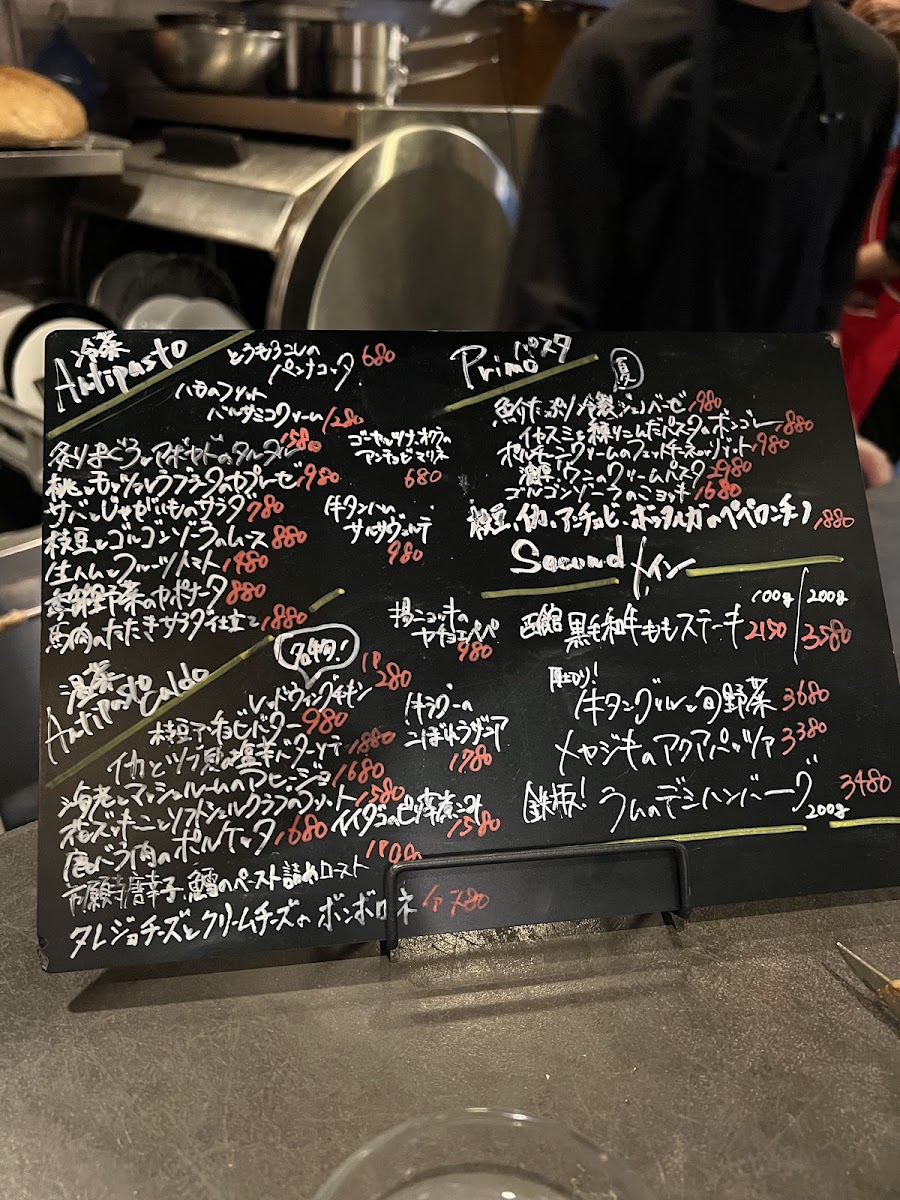 冷菜
Antipasto
とうもろこしの
パンナコッタ 680
ハモのフリット
バルサミコクリーム 1280
炙りまぐろとアボカドのタルタル 1580
桃とモッツァレラブラータのカプレーゼ 1980
サバとじゃがいものサラダ 780
枝豆とゴルゴンゾーラのムース 880
生ハムとフルーツトマト 1480
野菜のカポナータ 880
馬肉のたたきサラダ仕立て 1880
ゴーヤとツナ、オクラの
アンチョビマリネ
680
牛タンハム
サルサヴェルデ
980
温菜
Antipasto Caldo
名物!
レッドウィングチキン
1P 280
枝豆アンチョビバター 980
イカとツブ貝の塩辛バターソテー 1880
海老とマッシュルームのアヒージョ 1680
ズッキーニとソフトシェルクラブのフリット 1580
肩バラ肉のポルケッタ 1680
万願寺唐辛子、鱈のペースト詰めロースト 1800
タレジョチーズとクリームチーズの ボンボローネ 1P 780
揚げニョッキの
カチョエペペ
980
牛ラグーの
こぼれラザニア
1780
イイダコのピリ辛煮こみ
1580
Primo
パスタ
夏
冷製ジェノベーゼ 1980
練りこんだパスタのボンゴレ 1880
ポルチーニクリームのフェットチーネorリゾット 1980
ウニのクリームパスタ 2980
ゴルゴンゾーラのニョッキ 1680
枝豆、イカ、アンチョビ、ボッタルガのペペロンチーノ 1880
Secondo メイン
100g/200g
函館 黒毛和牛ももステーキ 2150/3580
厚切り!
牛タングリルと旬野菜 3680
メカジキのアクアパッツァ 3380
鉄板! ラムのデミハンバーグ 3480
200g